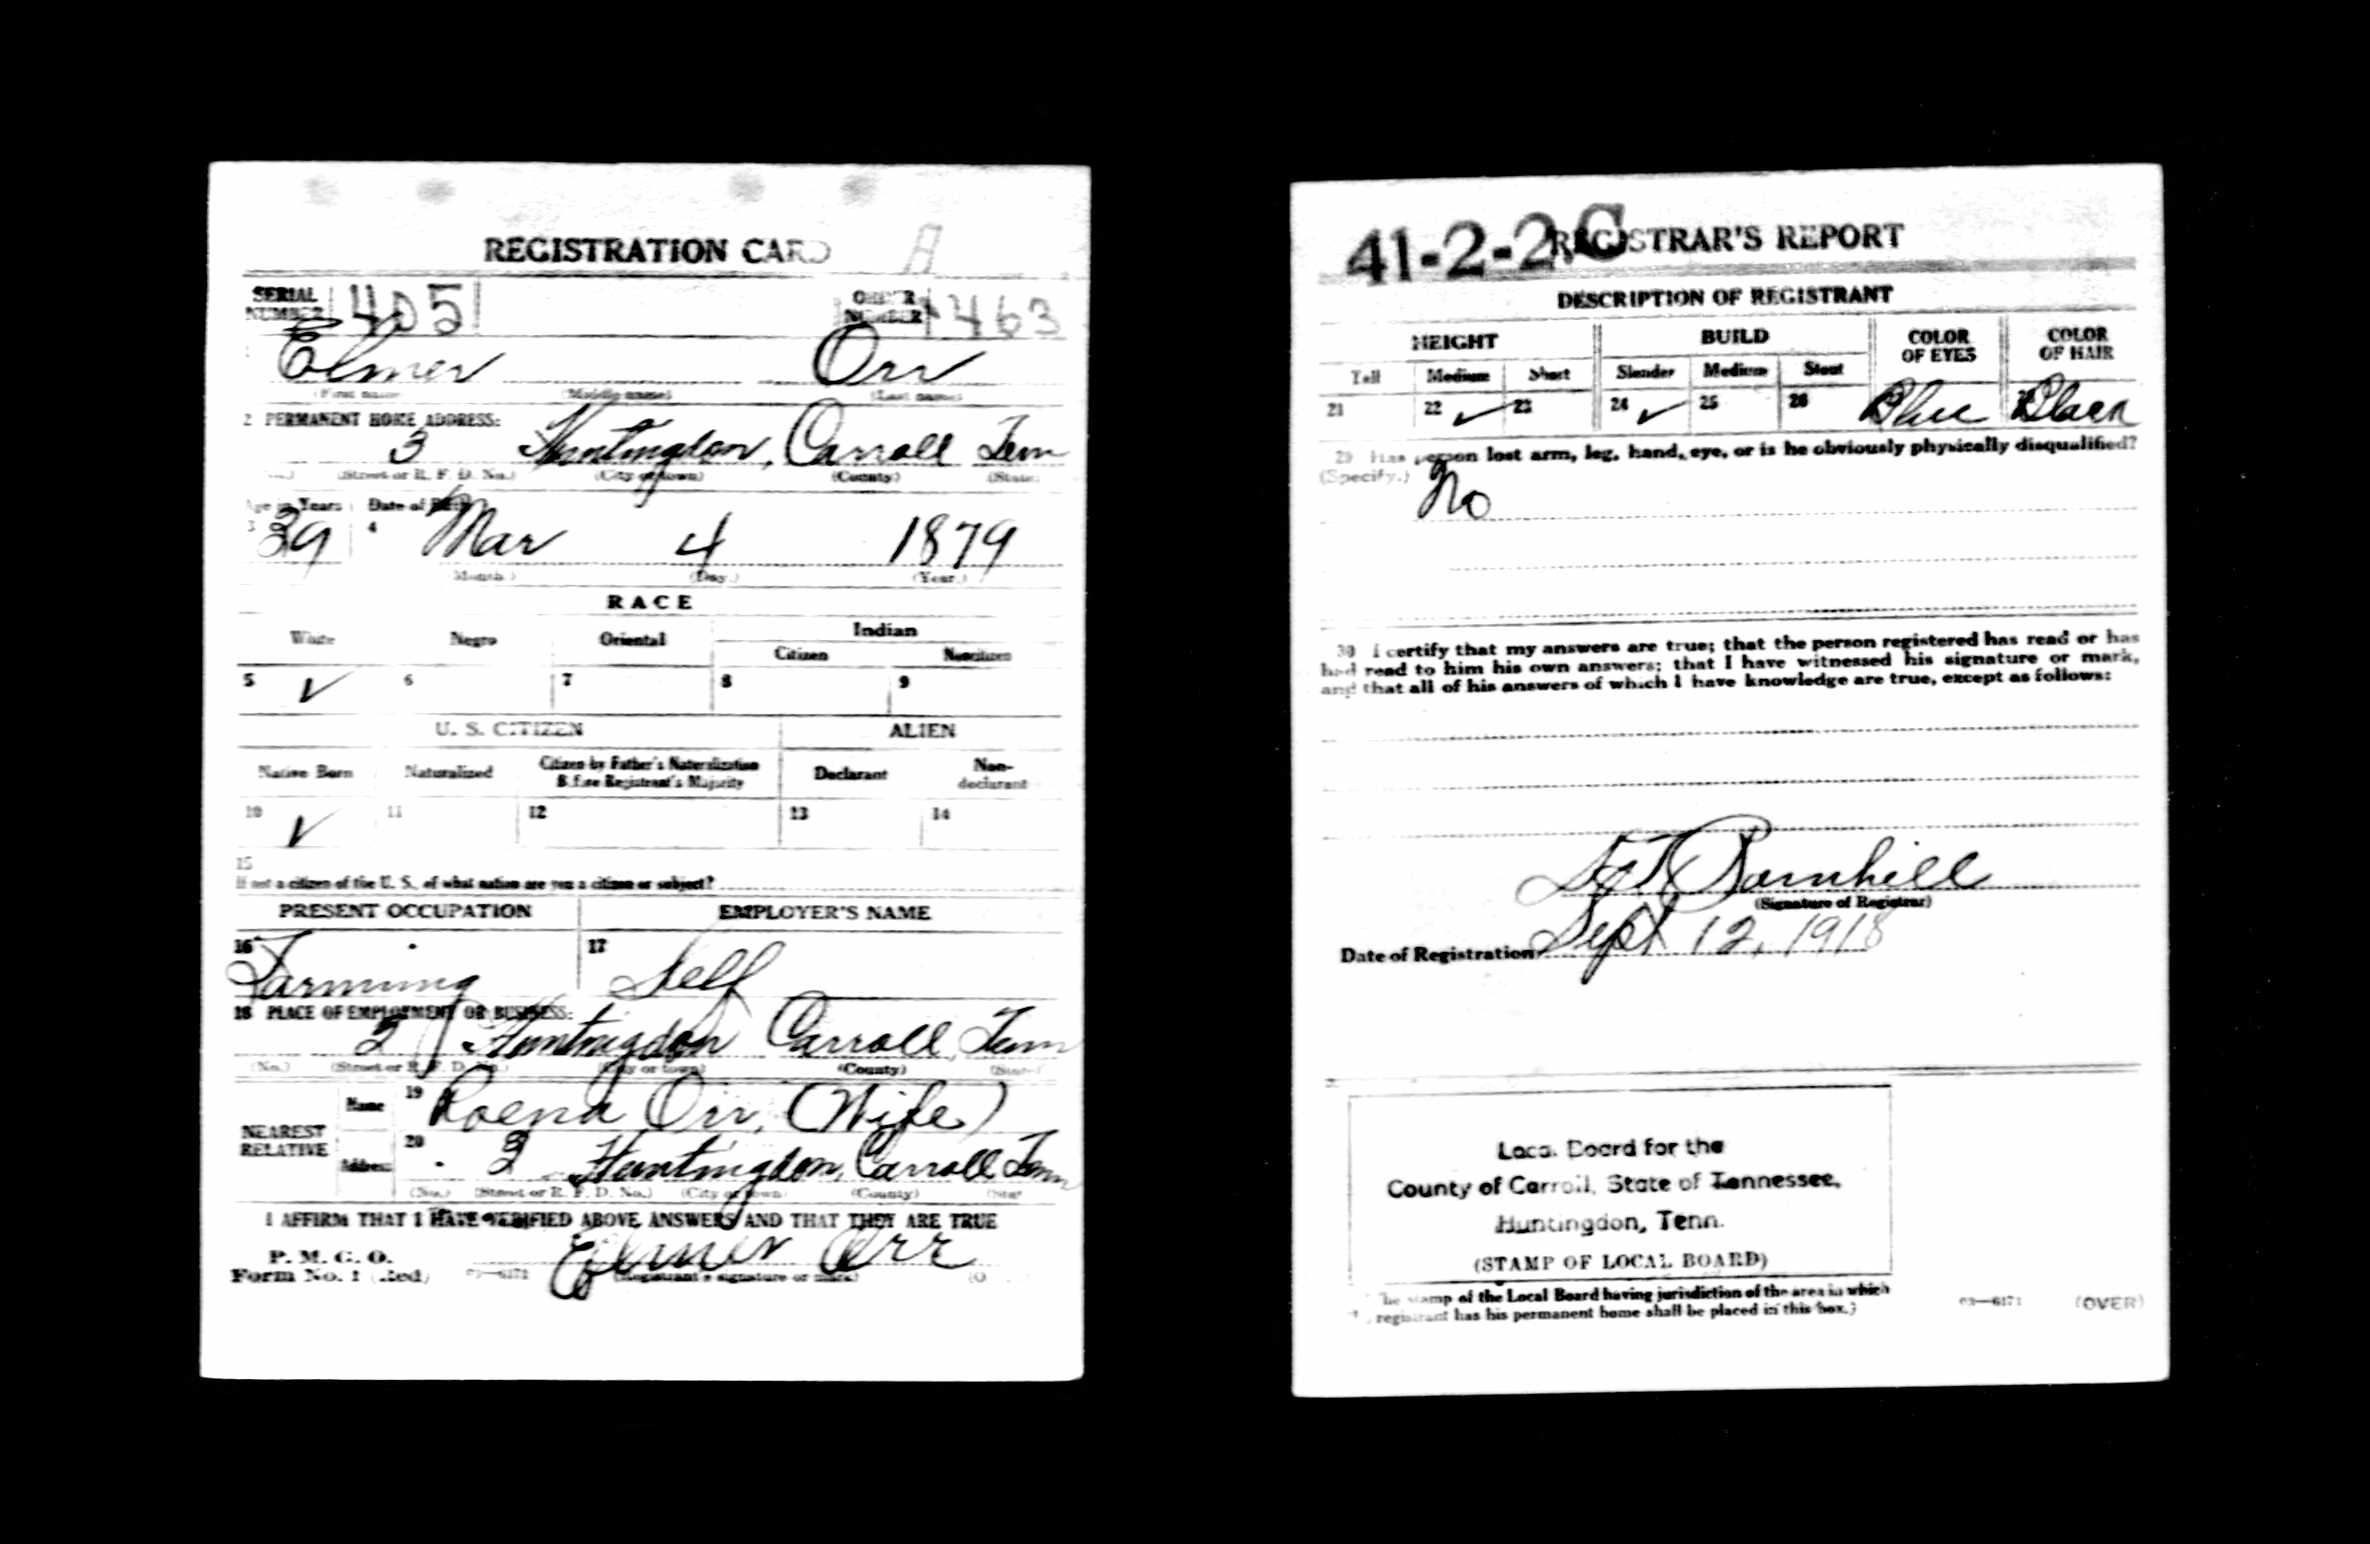 REGISTRATION CARD A
SERIAL NUMBER 405 ORDER NUMBER 1463
Elmer Orr
(First name) (Middle name) (Last name)
2 PERMANENT HOME ADDRESS:
3 Huntingdon, Carroll Tenn
(Street or R. F. D. No.) (City or town) (County) (State)
Age in Years Date of Birth
3 39 4 Mar 4 1879
(Month.) (Day.) (Year.)
RACE
White Negro Oriental Indian
Citizen Noncitizen
5 ✓ 6 7 8 9
U. S. CITIZEN ALIEN
Native Born Naturalized Citizen by Father's Naturalization Before Registrant's Majority Declarant Non-declarant
10 ✓ 11 12 13 14
15
If not a citizen of the U. S., of what nation are you a citizen or subject?
PRESENT OCCUPATION EMPLOYER'S NAME
16 Farming 17 Self
18 PLACE OF EMPLOYMENT OR BUSINESS:
3 Huntingdon Carroll, Tenn
(No.) (Street or R. F. D. No.) (City or town) (County) (State)
NEAREST RELATIVE
Name 19 Roena Orr, (Wife)
Address 20 3 Huntingdon, Carroll Tenn
(No.) (Street or R. F. D. No.) (City or town) (County) (State)
I AFFIRM THAT I HAVE VERIFIED ABOVE ANSWERS AND THAT THEY ARE TRUE
P. M. G. O.
Form No. 1 (Red) 03—6171 Elmer Orr
(Registrant's signature or mark)
41-2-2.C REGISTRAR'S REPORT
DESCRIPTION OF REGISTRANT
HEIGHT BUILD COLOR OF EYES COLOR OF HAIR
Tall Medium Short Slender Medium Stout
21 22 ✓ 23 24 ✓ 25 26 Blue Black
29 Has person lost arm, leg, hand, eye, or is he obviously physically disqualified?
(Specify.) No
30 I certify that my answers are true; that the person registered has read or has
had read to him his own answers; that I have witnessed his signature or mark,
and that all of his answers of which I have knowledge are true, except as follows:
Barnhill
(Signature of Registrar)
Date of Registration Sept 12, 1918
Local Board for the
County of Carroll, State of Tennessee,
Huntingdon, Tenn.
(STAMP OF LOCAL BOARD)
The stamp of the Local Board having jurisdiction of the area in which
registrant has his permanent home shall be placed in this box.)
03—6171 (OVER)